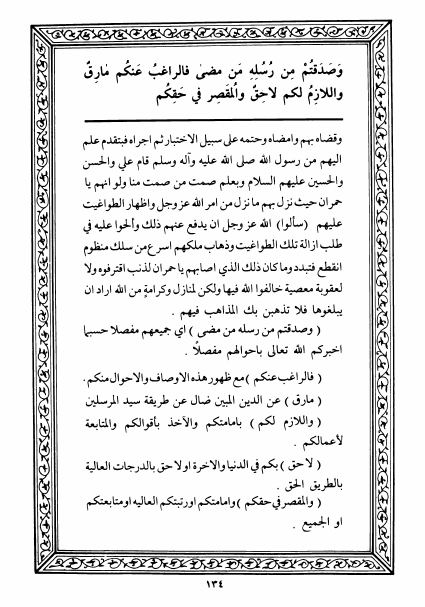 وَصَدَقْتُمْ مِن رُسُلِهِ مَن مضىٰ فالراغبُ عَنكُم مَارِقٌ
واللازِمُ لكم لاحِقٌ والُمَقصِر في حَقِكُم
وقضاه بهم وامضاه وحتمه على سبيل الاختبار ثم اجراه فبتقدم علم
اليهم من رسول الله صلى الله عليه وآله وسلم قام علي والحسن
والحسين عليهم السلام وبعلم صمت من صمت منا ولو انهم يا
حمران حيث نزل بهم ما نزل من امر الله عز وجل واظهار الطواغيت
عليهم (سألوا) الله عز وجل ان يدفع عنهم ذلك وألحوا عليه في
طلب ازالة تلك الطواغيت وذهاب ملكهم اسرع من سلك منظوم
انقطع فتبدد وما كان ذلك الذي اصابهم يا حمران لذنب اقترفوه ولا
لعقوبة معصية خالفوا الله فيها ولكن لمنازل وكرامةٍ من الله اراد ان
يبلغوها فلا تذهبن بك المذاهب فيهم .
( وصدقتم من رسله من مضى ) اي جميعهم مفصلا حسبما
اخبركم الله تعالى باحوالهم مفصلًا .
( فالراغب عنكم ) مع ظهور هذه الاوصاف والاحوال منكم.
( مارق ) عن الدين المبين ضال عن طريقة سيد المرسلين
( واللازم لكم ) بامامتكم والآخذ بأقوالكم والمتابعة
لأعمالكم .
( لاحق ) بكم في الدنيا والاخرة او لاحق بالدرجات العالية
بالطريق الحق .
( والمقصر في حقكم ) وامامتكم اورتبتكم العاليه اومتابعتكم
او الجميع .
١٣٤